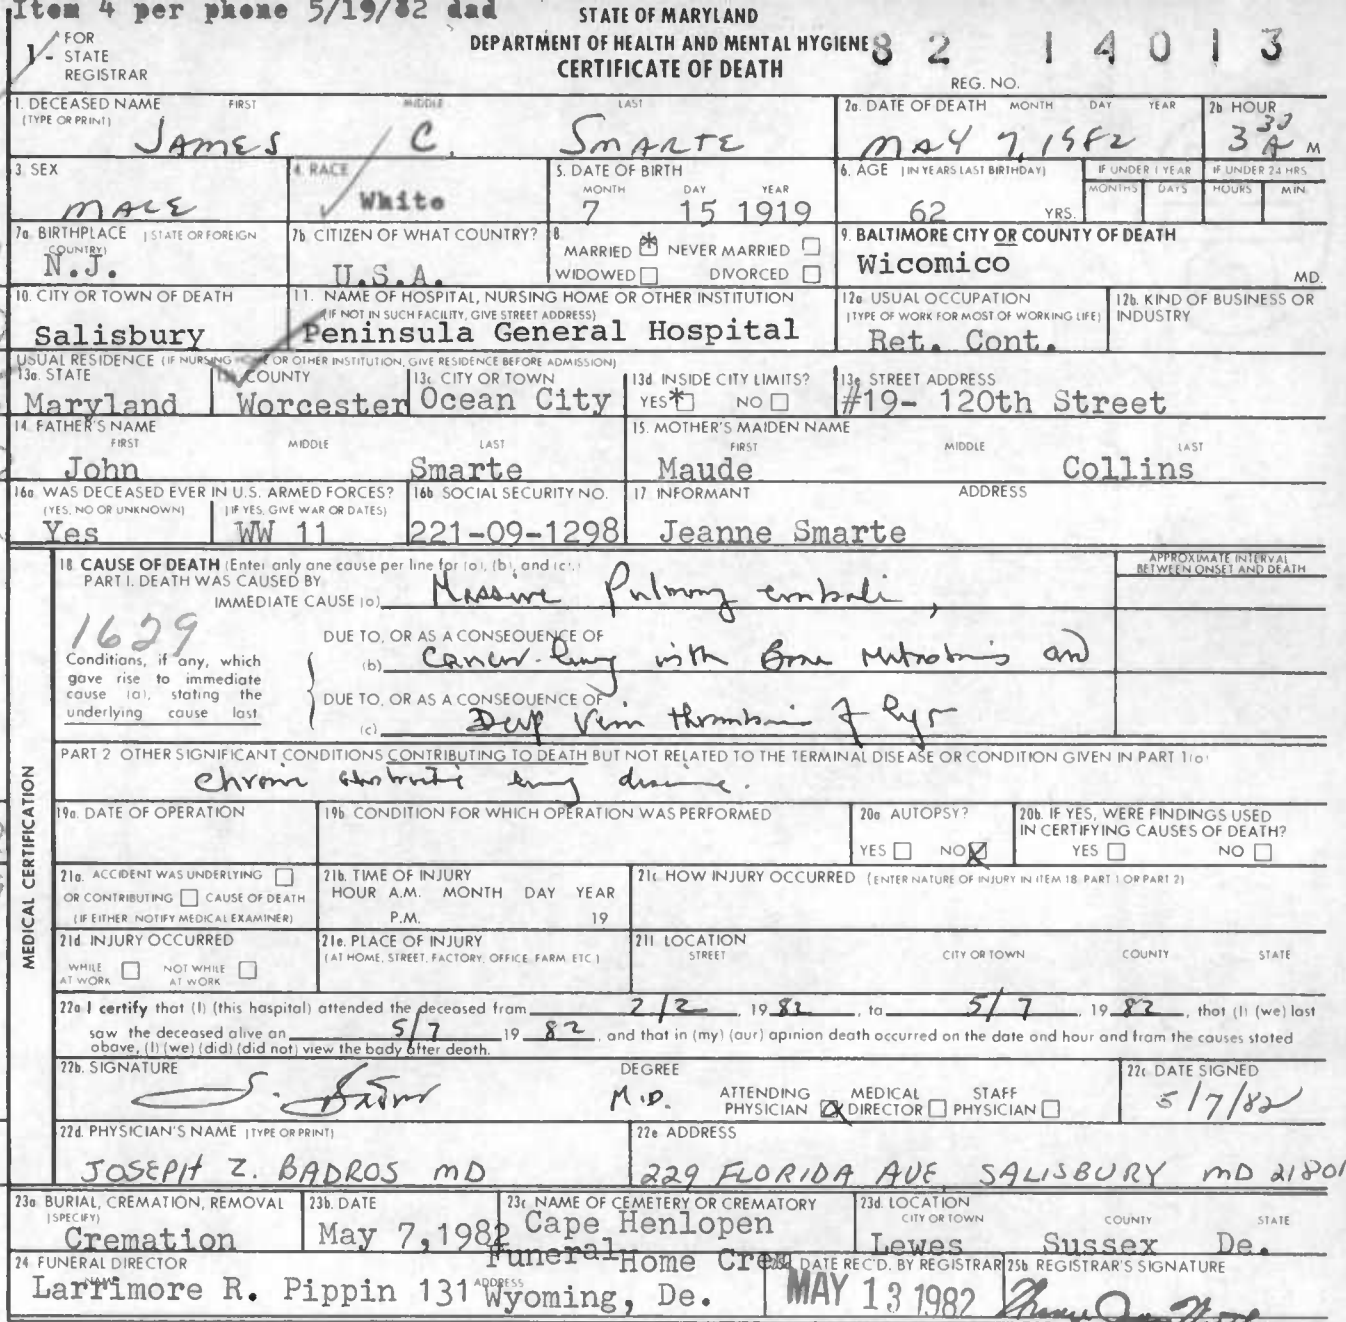 Item 4 per phone 5/19/82 dad
STATE OF MARYLAND
DEPARTMENT OF HEALTH AND MENTAL HYGIENE
CERTIFICATE OF DEATH
1- FOR STATE REGISTRAR
82 14013
REG. NO.
1. DECEASED NAME FIRST MIDDLE LAST
(TYPE OR PRINT)
JAMES C. SMARTE
2a. DATE OF DEATH MONTH DAY YEAR
MAY 7, 1982
2b HOUR
3 30 A M
3. SEX
MALE
4. RACE
White
5. DATE OF BIRTH
MONTH DAY YEAR
7 15 1919
6. AGE (IN YEARS LAST BIRTHDAY)
62 YRS.
IF UNDER 1 YEAR
MONTHS DAYS
IF UNDER 24 HRS
HOURS MIN
7a BIRTHPLACE (STATE OR FOREIGN COUNTRY)
N.J.
7b. CITIZEN OF WHAT COUNTRY?
U.S.A.
8
MARRIED * NEVER MARRIED
WIDOWED DIVORCED
9. BALTIMORE CITY OR COUNTY OF DEATH
Wicomico MD.
10. CITY OR TOWN OF DEATH
Salisbury
11. NAME OF HOSPITAL, NURSING HOME OR OTHER INSTITUTION
(IF NOT IN SUCH FACILITY, GIVE STREET ADDRESS)
Peninsula General Hospital
12a USUAL OCCUPATION
(TYPE OF WORK FOR MOST OF WORKING LIFE)
Ret. Cont.
12b. KIND OF BUSINESS OR INDUSTRY
USUAL RESIDENCE (IF NURSING HOME OR OTHER INSTITUTION, GIVE RESIDENCE BEFORE ADMISSION)
13a. STATE
Maryland
COUNTY
Worcester
13c. CITY OR TOWN
Ocean City
13d INSIDE CITY LIMITS?
YES * NO
13e STREET ADDRESS
#19- 120th Street
14 FATHER'S NAME
FIRST MIDDLE LAST
John Smarte
15. MOTHER'S MAIDEN NAME
FIRST MIDDLE LAST
Maude Collins
16a WAS DECEASED EVER IN U.S. ARMED FORCES?
(YES, NO OR UNKNOWN) (IF YES, GIVE WAR OR DATES)
Yes WW 11
16b SOCIAL SECURITY NO.
221-09-1298
17 INFORMANT ADDRESS
Jeanne Smarte
18 CAUSE OF DEATH (Enter only one cause per line for (a), (b), and (c).)
APPROXIMATE INTERVAL BETWEEN ONSET AND DEATH
PART I. DEATH WAS CAUSED BY
IMMEDIATE CAUSE (a) Massive Pulmonary emboli,
1629
Conditions, if any, which
gave rise to immediate
cause (a), stating the
underlying cause last
DUE TO, OR AS A CONSEQUENCE OF
(b) Cancer lung with Bone Metastasis and
DUE TO, OR AS A CONSEQUENCE OF
(c) Deep Vein thrombosis of legs
PART 2 OTHER SIGNIFICANT CONDITIONS CONTRIBUTING TO DEATH BUT NOT RELATED TO THE TERMINAL DISEASE OR CONDITION GIVEN IN PART 1(a)
Chronic obstructive lung disease.
MEDICAL CERTIFICATION
19a. DATE OF OPERATION
19b CONDITION FOR WHICH OPERATION WAS PERFORMED
20a AUTOPSY?
YES NO X
20b. IF YES, WERE FINDINGS USED
IN CERTIFYING CAUSES OF DEATH?
YES NO
21a. ACCIDENT WAS UNDERLYING
OR CONTRIBUTING CAUSE OF DEATH
(IF EITHER NOTIFY MEDICAL EXAMINER)
21b. TIME OF INJURY
HOUR A.M. MONTH DAY YEAR
P.M. 19
21c HOW INJURY OCCURRED (ENTER NATURE OF INJURY IN ITEM 18 PART 1 OR PART 2)
21d INJURY OCCURRED
WHILE AT WORK NOT WHILE AT WORK
21e. PLACE OF INJURY
(AT HOME, STREET, FACTORY, OFFICE, FARM, ETC.)
21f LOCATION
STREET CITY OR TOWN COUNTY STATE
22a I certify that (I) (this hospital) attended the deceased from 2/2, 1982, to 5/7, 1982, that (I) (we) last
saw the deceased alive on 5/7 1982, and that in (my) (our) opinion death occurred on the date and hour and from the causes stated
above, (I) (we) (did) (did not) view the body after death.
22b. SIGNATURE DEGREE
J. Badros M.D.
ATTENDING PHYSICIAN X MEDICAL DIRECTOR STAFF PHYSICIAN
22c DATE SIGNED
5/7/82
22d. PHYSICIAN'S NAME (TYPE OR PRINT)
JOSEPH Z. BADROS MD
22e ADDRESS
229 FLORIDA AVE SALISBURY MD 21801
23a BURIAL, CREMATION, REMOVAL
(SPECIFY)
Cremation
23b. DATE
May 7, 1982
23c NAME OF CEMETERY OR CREMATORY
Cape Henlopen
Funeral Home Crem
23d. LOCATION
CITY OR TOWN COUNTY STATE
Lewes Sussex De.
24 FUNERAL DIRECTOR
NAME ADDRESS
Larrimore R. Pippin 131 Wyoming, De.
DATE REC'D. BY REGISTRAR
MAY 13 1982
25b REGISTRAR'S SIGNATURE